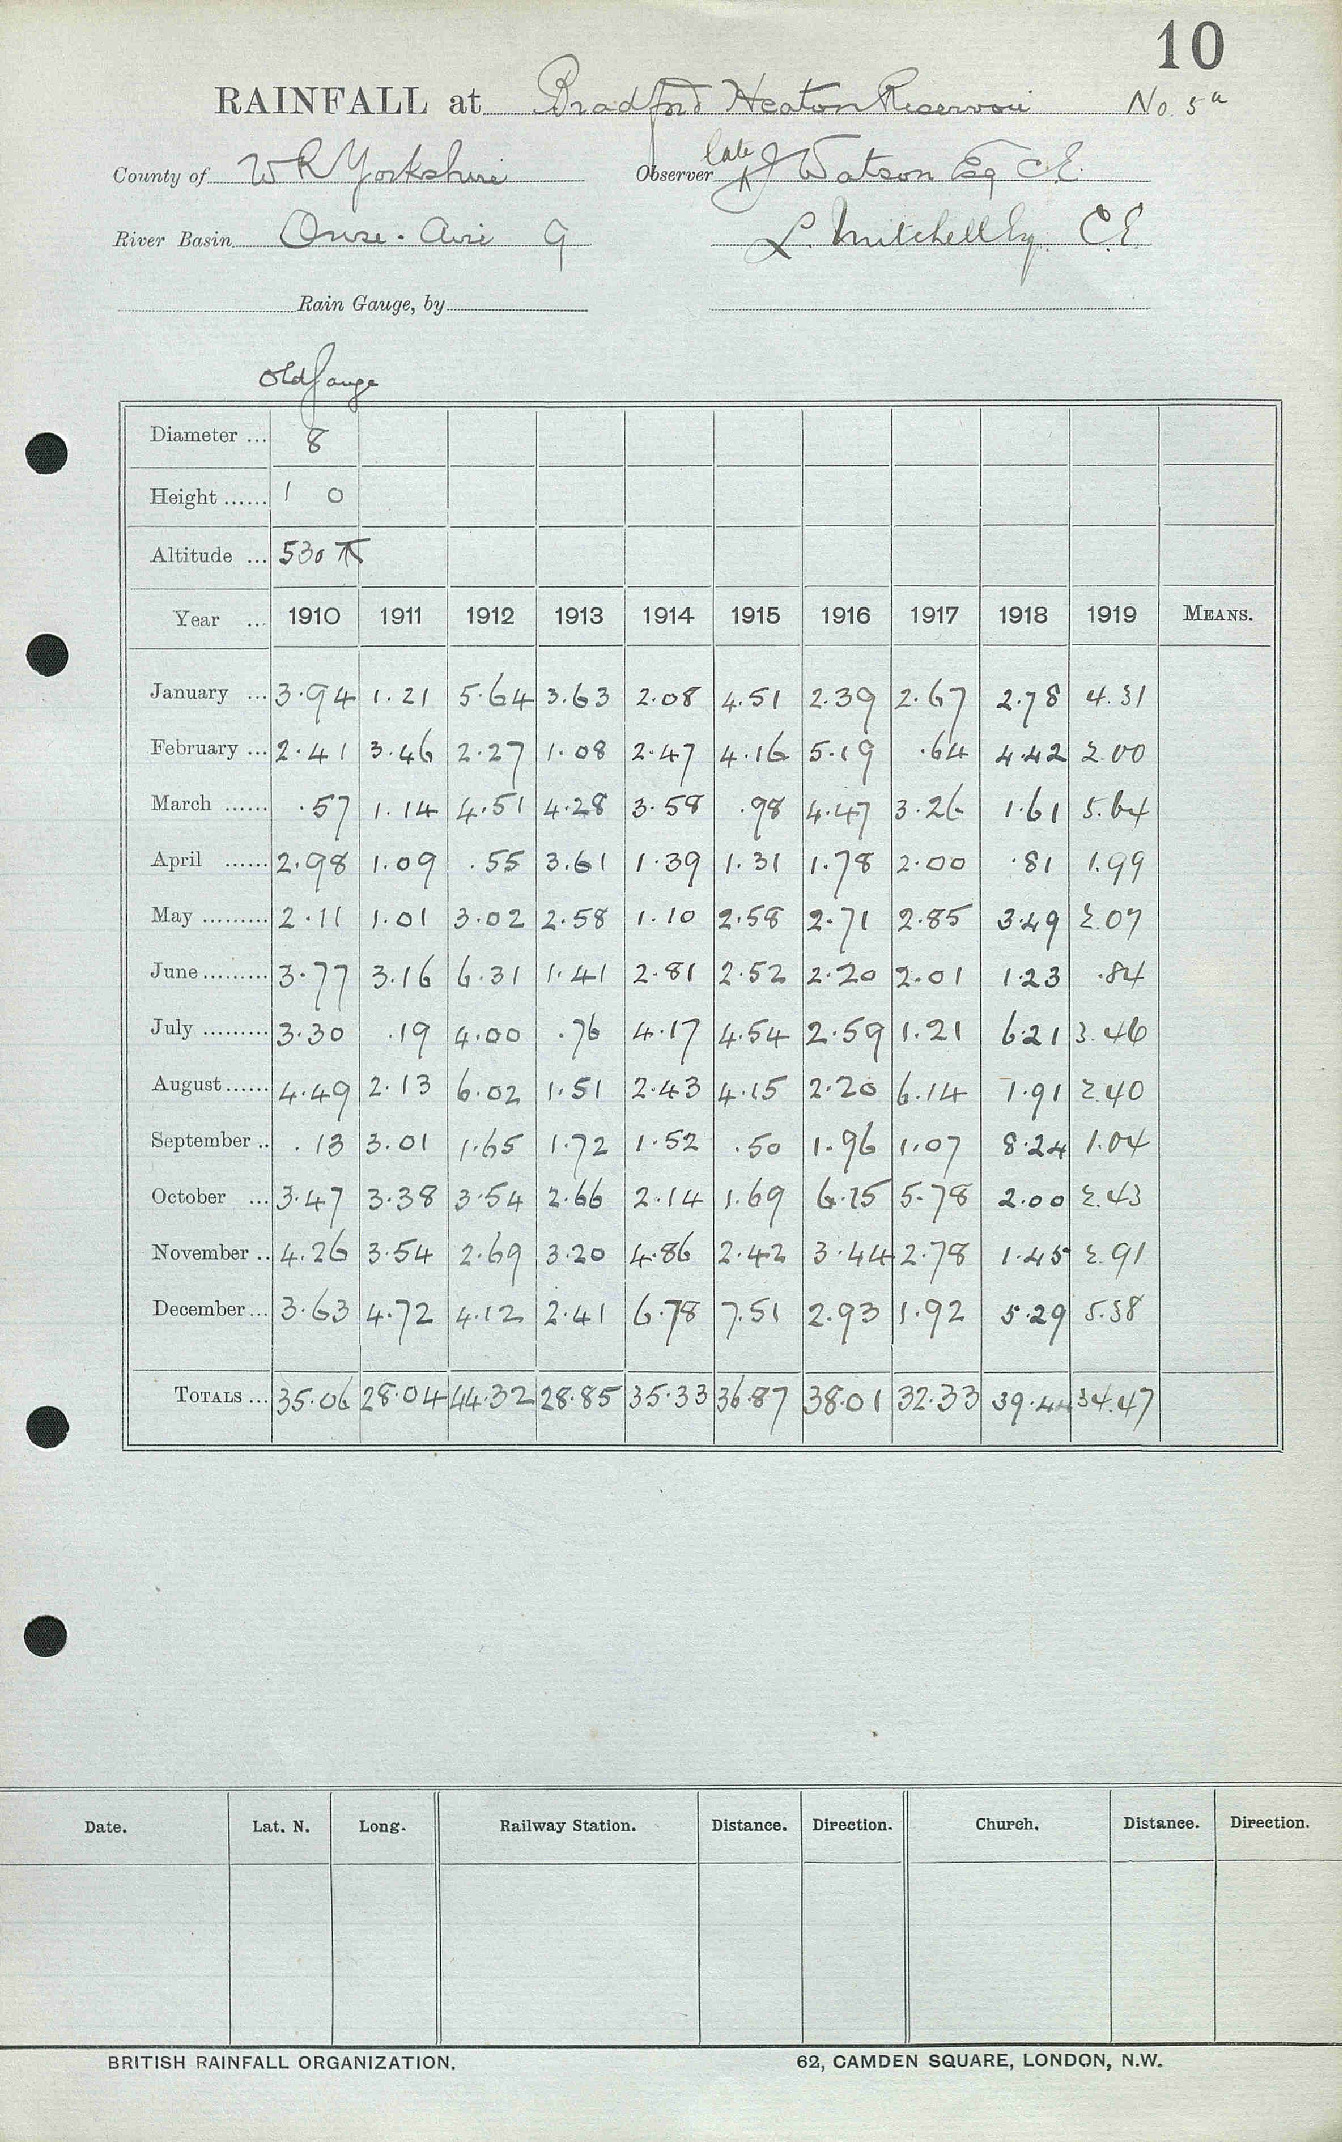 10
RAINFALL at Bradford Heaton Reservoir No. 5a
County of W R Yorkshire Observer late J Watson Esq C.E.
River Basin Ouse - Aire 9 L. Mitchell Esq. C.E.
Rain Gauge, by
Old Gauge
Diameter ... 8
Height ...... 1 0
Altitude ... 530
Year ... 1910 1911 1912 1913 1914 1915 1916 1917 1918 1919 MEANS.
January ... 3.94 1.21 5.64 3.63 2.08 4.51 2.39 2.67 2.78 4.31
February ... 2.41 3.46 2.27 1.08 2.47 4.16 5.19 .64 4.42 2.00
March ...... .57 1.14 4.51 4.28 3.58 .98 4.47 3.26 1.61 5.64
April ...... 2.98 1.09 .55 3.61 1.39 1.31 1.78 2.00 .81 1.99
May ......... 2.11 1.01 3.02 2.58 1.10 2.58 2.71 2.85 3.49 2.07
June ......... 3.77 3.16 6.31 1.41 2.81 2.52 2.20 2.01 1.23 .84
July ......... 3.30 .19 4.00 .76 4.17 4.54 2.59 1.21 6.21 3.46
August ...... 4.49 2.13 6.02 1.51 2.43 4.15 2.20 6.14 1.91 2.40
September .. .13 3.01 1.65 1.72 1.52 .50 1.96 1.07 8.24 1.04
October ... 3.47 3.38 3.54 2.66 2.14 1.69 6.15 5.78 2.00 2.43
November .. 4.26 3.54 2.69 3.20 4.86 2.42 3.44 2.78 1.45 2.91
December ... 3.63 4.72 4.12 2.41 6.78 7.51 2.93 1.92 5.29 5.38
TOTALS ... 35.06 28.04 44.32 28.85 35.33 36.87 38.01 32.33 39.44 34.47
Date. Lat. N. Long. Railway Station. Distance. Direction. Church. Distance. Direction.
BRITISH RAINFALL ORGANIZATION. 62, CAMDEN SQUARE, LONDON, N.W.